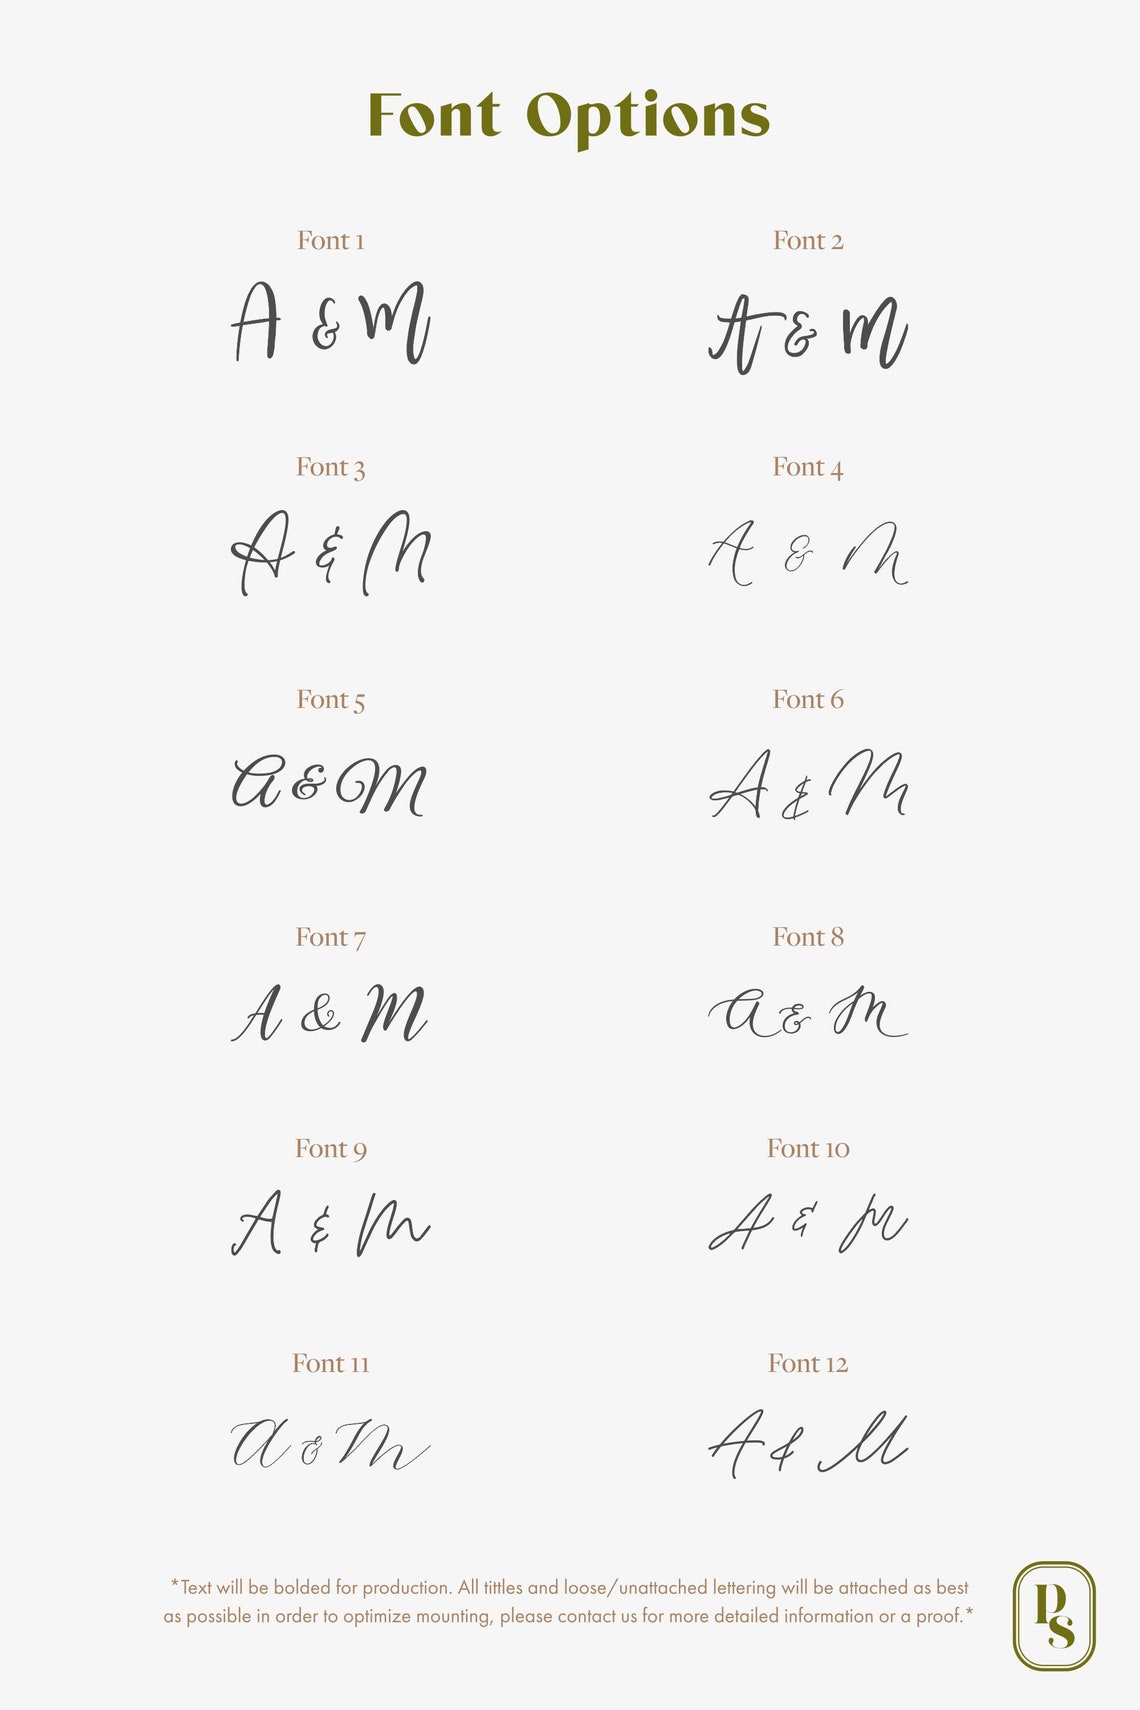 Font Options
Font 1
Font 2
A & M
A & M
Font 3
Font 4
A & M
A & M
Font 5
Font 6
A & M
A & M
Font 7
Font 8
A & M
A & M
Font 9
Font 10
A & M
A & M
Font 11
Font 12
A & M
A & M
*Text will be bolded for production. All tittles and loose/unattached lettering will be attached as best
as possible in order to optimize mounting, please contact us for more detailed information or a proof.*
PS